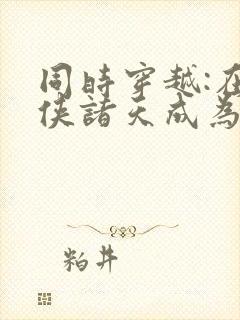 同時穿越:在
俠諸天成為
粕井